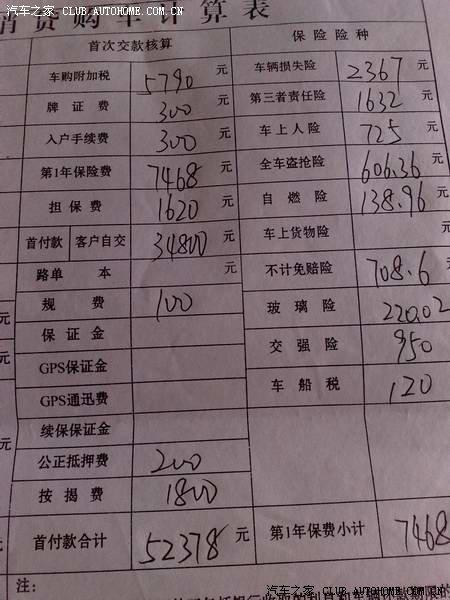 汽车之家 CLUB.AUTOHOME.COM.CN
消费购车计算表
首次交款核算 保险险种
车购附加税 5790 元 车辆损失险 2367 元
牌证费 300 元 第三者责任险 1632 元
入户手续费 300 元 车上人险 725 元
第1年保险费 7468 元 全车盗抢险 606.36 元
担保费 1620 元 自燃险 138.96 元
首付款 客户自交 34800 元 车上货物险 元
路单 本 元 不计免赔险 708.6 元
规费 100 玻璃险 220.02 元
元 保证金 交强险 950
元 GPS保证金 车船税 120
GPS通迅费
元 续保保证金
公正抵押费 200
按揭费 1800
首付款合计 52378 元 第1年保费小计 7468
注：
汽车之家 CLUB.AUTOHOME.COM.CN